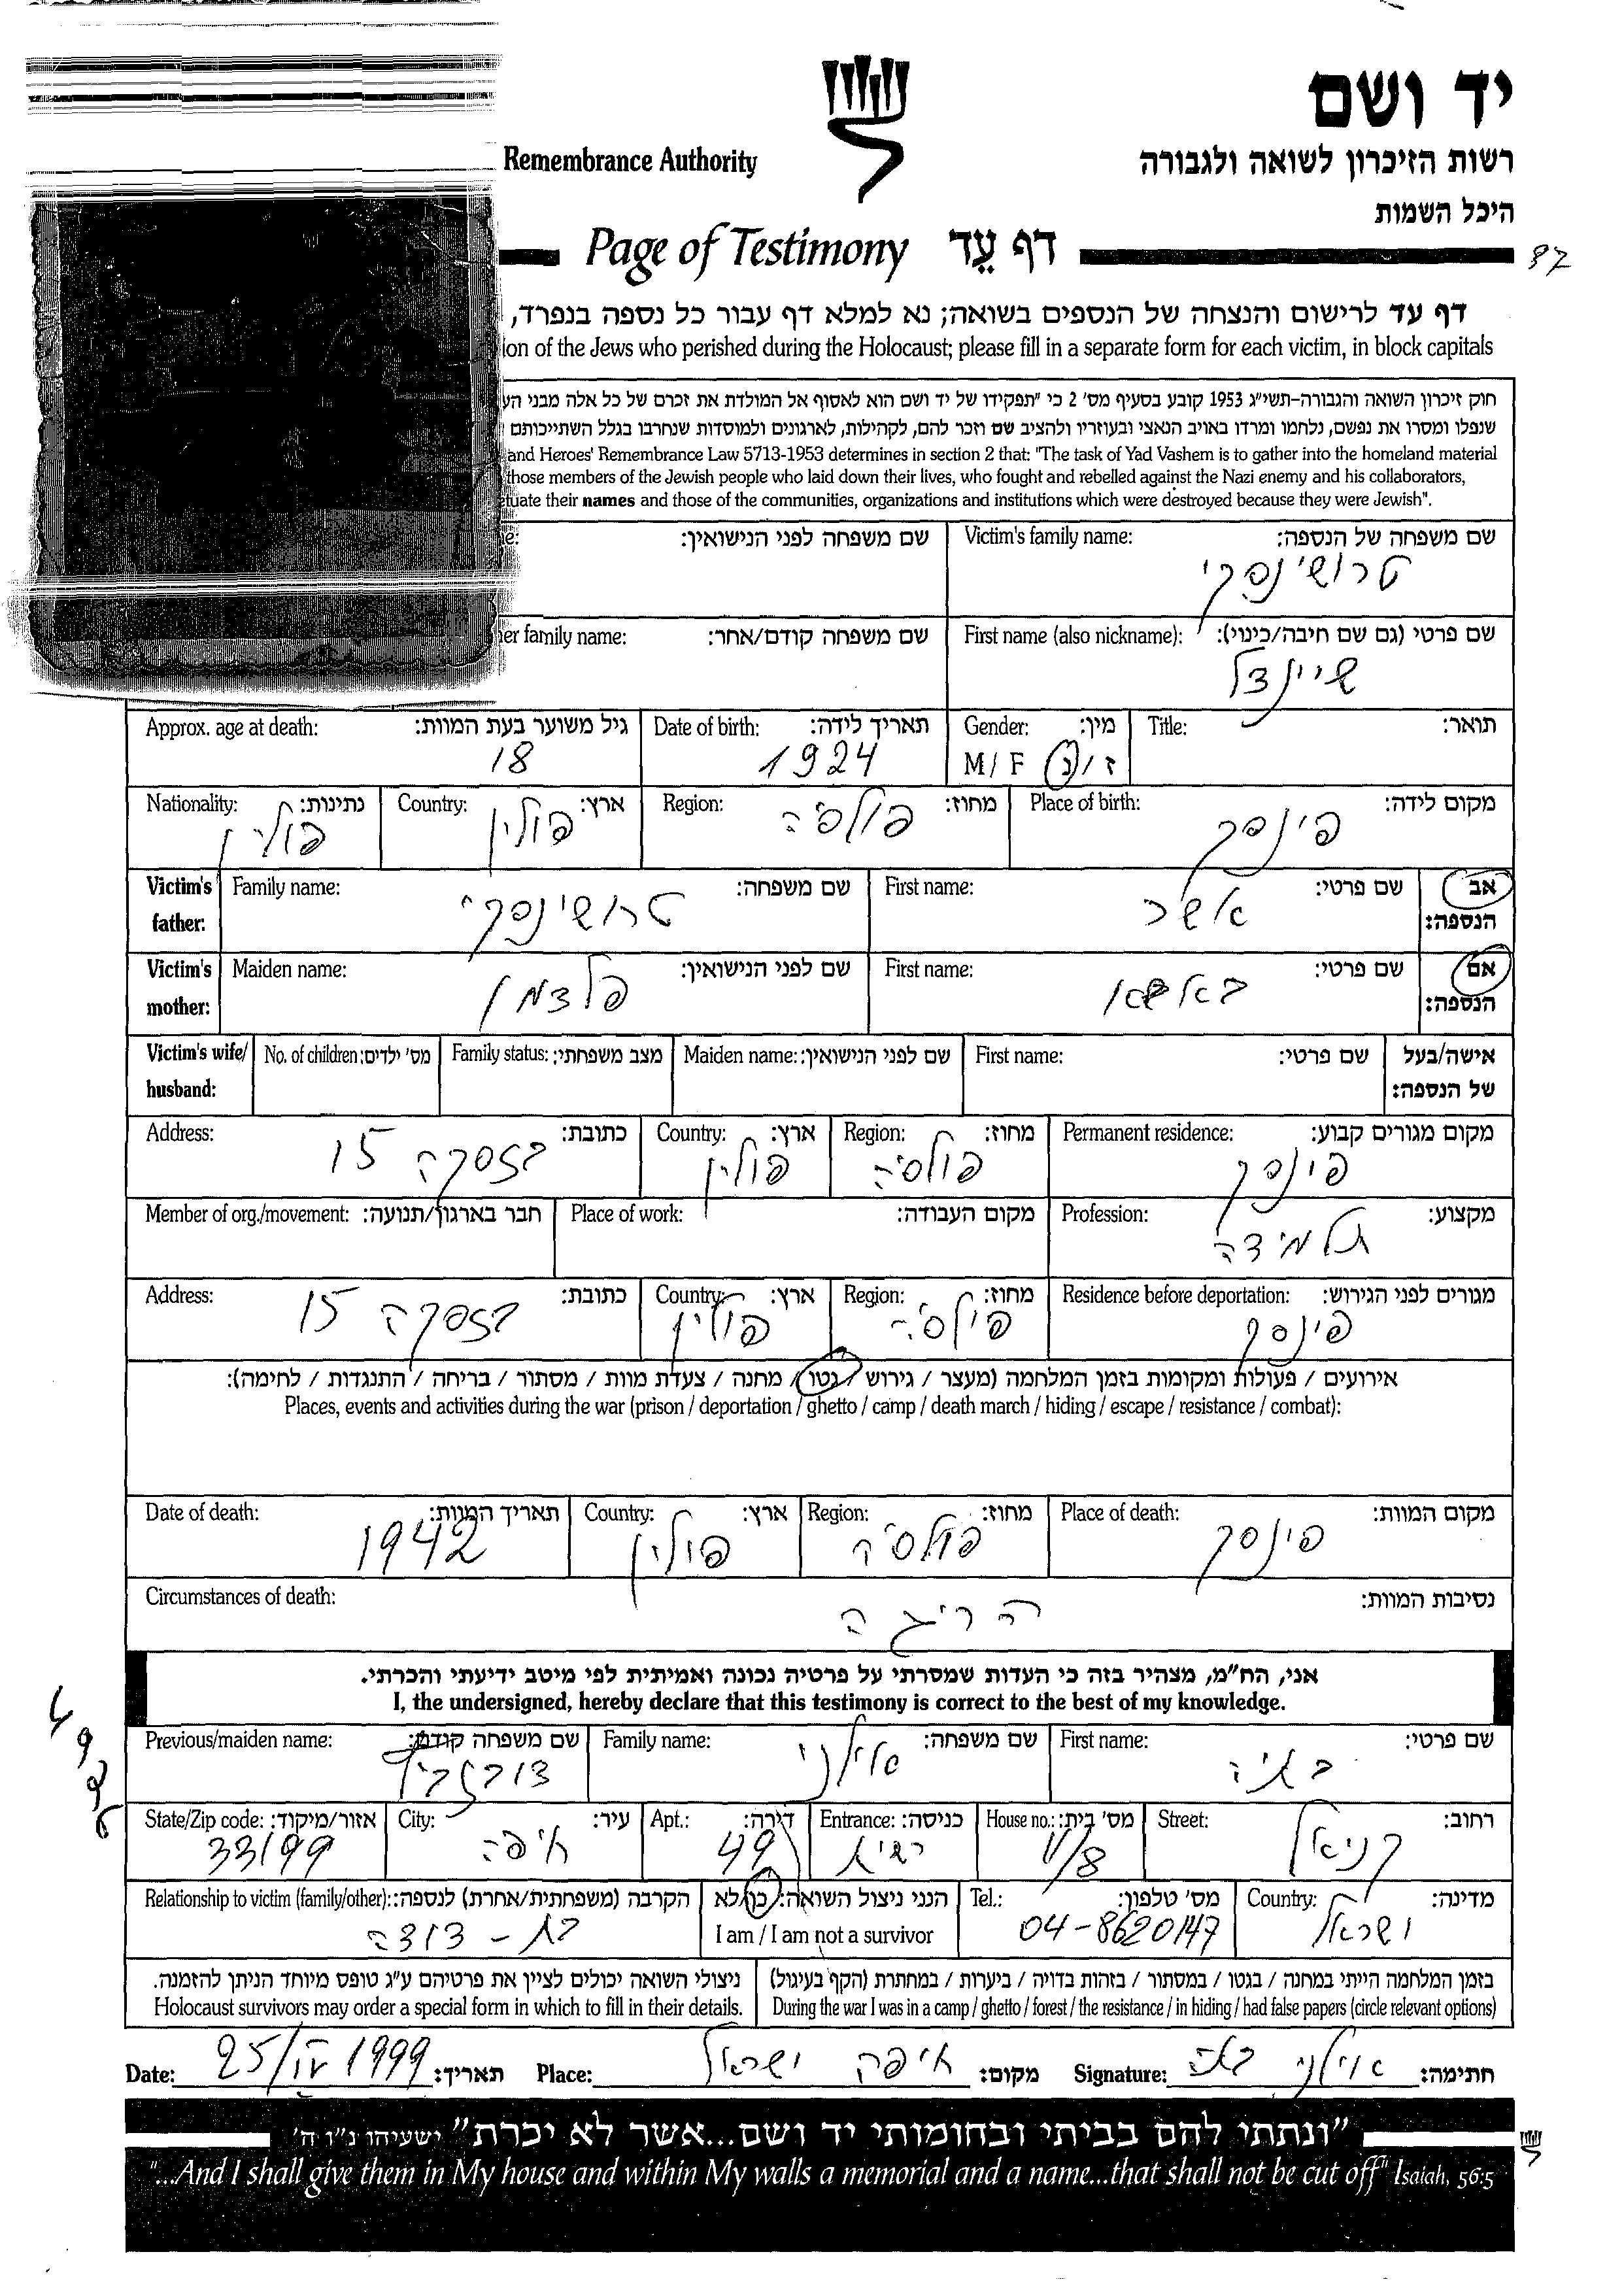 יד ושם
Remembrance Authority
רשות הזיכרון לשואה ולגבורה
היכל השמות
Page of Testimony דף עֵד
דף עד לרישום והנצחה של הנספים בשואה; נא למלא דף עבור כל נספה בנפרד,
ion of the Jews who perished during the Holocaust; please fill in a separate form for each victim, in block capitals
חוק זיכרון השואה והגבורה-תשי״ג 1953 קובע בסעיף מס׳ 2 כי ״תפקידו של יד ושם הוא לאסוף אל המולדת את זכרם של כל אלה מבני הע
שנפלו ומסרו את נפשם, נלחמו ומרדו באויב הנאצי ובעוזריו ולהציב שם וזכר להם, לקהילות, לארגונים ולמוסדות שנחרבו בגלל השתייכותם
and Heroes' Remembrance Law 5713-1953 determines in section 2 that: "The task of Yad Vashem is to gather into the homeland material
those members of the Jewish people who laid down their lives, who fought and rebelled against the Nazi enemy and his collaborators,
etuate their names and those of the communities, organizations and institutions which were destroyed because they were Jewish".
שם משפחה של הנספה: Victim's family name: שם משפחה לפני הנישואין: ne:
טרושינסקי
שם פרטי (גם שם חיבה/כינוי): First name (also nickname): שם משפחה קודם/אחר: her family name:
שיינדל
תואר: Title: מין: Gender: תאריך לידה: Date of birth: גיל משוער בעת המוות: Approx. age at death:
ז/נ M/F 1924 18
מקום לידה: Place of birth: מחוז: Region: ארץ: Country: נתינות: Nationality:
פינסק פולסיה פולין פולין
אב שם פרטי: First name: שם משפחה: Family name: Victim's
הנספה: אשר טרושינסקי father:
אם שם פרטי: First name: שם לפני הנישואין: Maiden name: Victim's
הנספה: באשא פלצמן mother:
אישה/בעל שם פרטי: First name: שם לפני הנישואין: Maiden name: מצב משפחתי: Family status: מס׳ ילדים: No. of children: Victim's wife/
של הנספה: husband:
מקום מגורים קבוע: Permanent residence: מחוז: Region: ארץ: Country: כתובת: Address:
פינסק פולסיה פולין 15
מקצוע: Profession: מקום העבודה: Place of work: חבר בארגון/תנועה: Member of org./movement:
תלמידה
מגורים לפני הגירוש: Residence before deportation: מחוז: Region: ארץ: Country: כתובת: Address:
פינסק פולסיה פולין 15
אירועים / פעולות ומקומות בזמן המלחמה (מעצר / גירוש / גטו / מחנה / צעדת מוות / מסתור / בריחה / התנגדות / לחימה):
Places, events and activities during the war (prison / deportation / ghetto / camp / death march / hiding / escape / resistance / combat):
מקום המוות: Place of death: מחוז: Region: ארץ: Country: תאריך המוות: Date of death:
פינסק פולסיה פולין 1942
נסיבות המוות: Circumstances of death:
הריגה
אני, הח״מ, מצהיר בזה כי העדות שמסרתי על פרטיה נכונה ואמיתית לפי מיטב ידיעתי והכרתי.
I, the undersigned, hereby declare that this testimony is correct to the best of my knowledge.
שם פרטי: First name: שם משפחה: Family name: שם משפחה קודם: Previous/maiden name:
בתיה אילני
רחוב: Street: מס׳ בית: House no.: כניסה: Entrance: דירה: Apt.: עיר: City: אזור/מיקוד: State/Zip code:
49 חיפה 33199
מדינה: Country: מס׳ טלפון: Tel.: הנני ניצול השואה: כן/לא הקרבה (משפחתית/אחרת) לנספה: Relationship to victim (family/other):
ישראל 04-8620147 I am / I am not a survivor בת - דודה
בזמן המלחמה הייתי במחנה / בגטו / במסתור / בזהות בדויה / ביערות / במחתרת (הקף בעיגול) ניצולי השואה יכולים לציין את פרטיהם ע״ג טופס מיוחד הניתן להזמנה.
During the war I was in a camp / ghetto / forest / the resistance / in hiding / had false papers (circle relevant options) Holocaust survivors may order a special form in which to fill in their details.
חתימה: אילני בתיה Signature: מקום: חיפה ישראל Place: תאריך: 25/IV 1999 Date:
״ונתתי להם בביתי ובחומותי יד ושם...אשר לא יכרת״ ישעיהו נ״ו ה׳
"...And I shall give them in My house and within My walls a memorial and a name...that shall not be cut off" Isaiah, 56:5